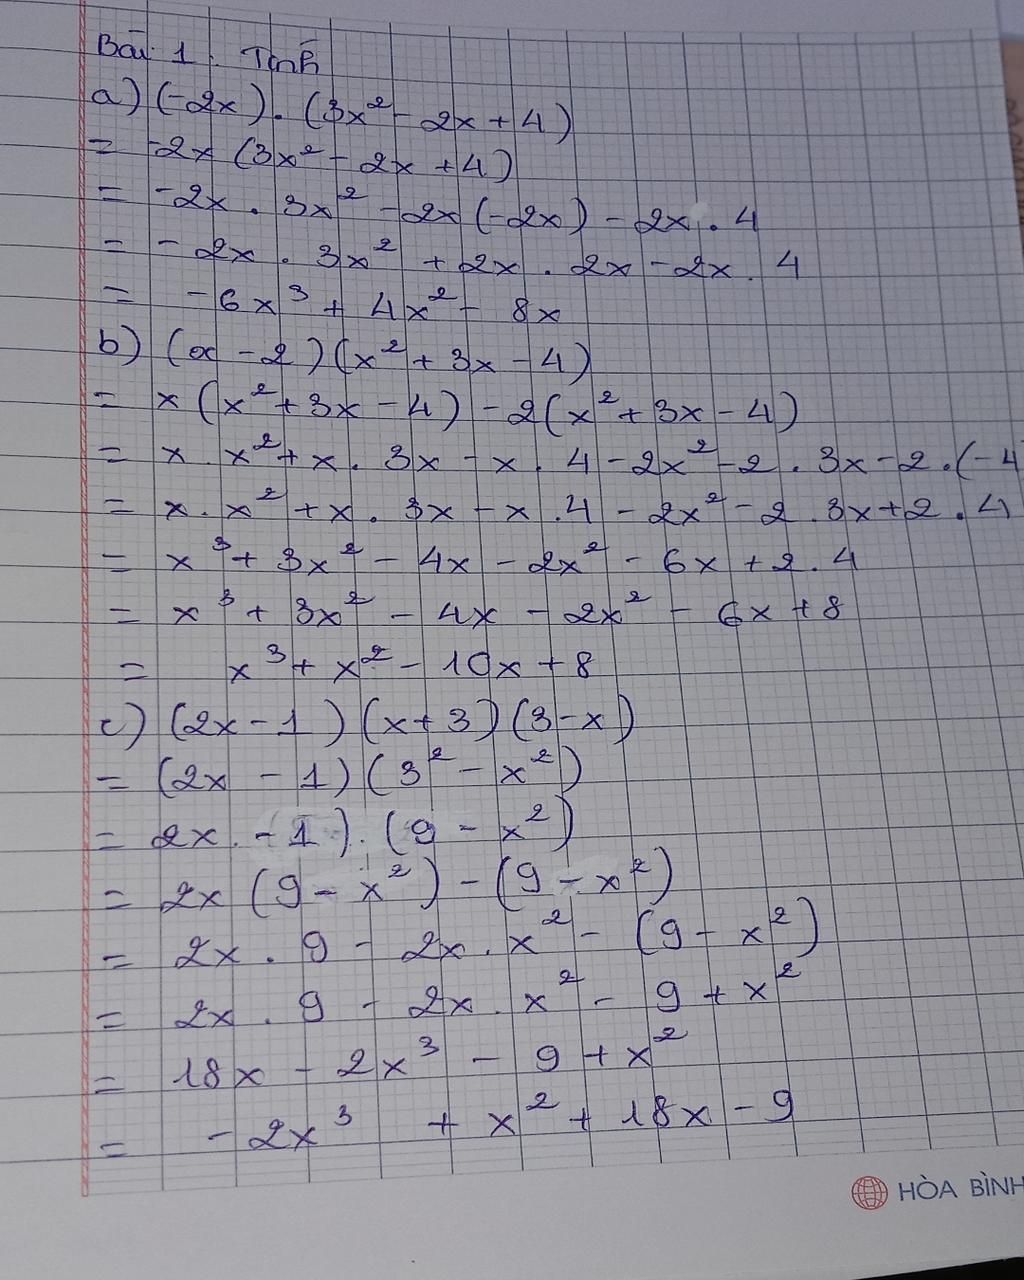 Bài 1. Tính
a) (-2x).(3x² - 2x + 4)
= -2x (3x² - 2x + 4)
= -2x . 3x² - 2x (-2x) - 2x . 4
= -2x . 3x² + 2x . 2x - 2x . 4
= -6x³ + 4x² - 8x
b) (x - 2)(x² + 3x - 4)
= x (x² + 3x - 4) - 2(x² + 3x - 4)
= x . x² + x . 3x - x . 4 - 2x² - 2 . 3x - 2 . (-4
= x . x² + x . 3x - x . 4 - 2x² - 2 . 3x + 2 . 4
= x³ + 3x² - 4x - 2x² - 6x + 2 . 4
= x³ + 3x² - 4x - 2x² - 6x + 8
= x³ + x² - 10x + 8
c) (2x - 1)(x + 3)(3 - x)
= (2x - 1)(3² - x²)
= 2x - 1).(9 - x²)
= 2x (9 - x²) - (9 - x²)
= 2x . 9 - 2x . x² - (9 - x²)
= 2x . 9 - 2x . x² - 9 + x²
= 18x - 2x³ - 9 + x²
= -2x³ + x² + 18x - 9
HÒA BÌNH